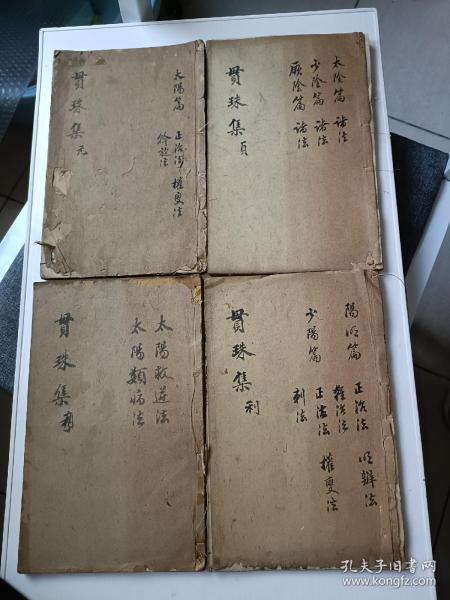 太陽篇 正治法 權變法
斡旋法
貫珠集 元
太陰篇 諸法
少陰篇 諸法
厥陰篇 諸法
貫珠集 貞
太陽救逆法
太陽類病法
貫珠集
陽明篇 正治法 明辨法
雜治法
少陽篇 正治法 權變法
刺法
貫珠集 利
孔夫子旧书网
www.kongfz.com